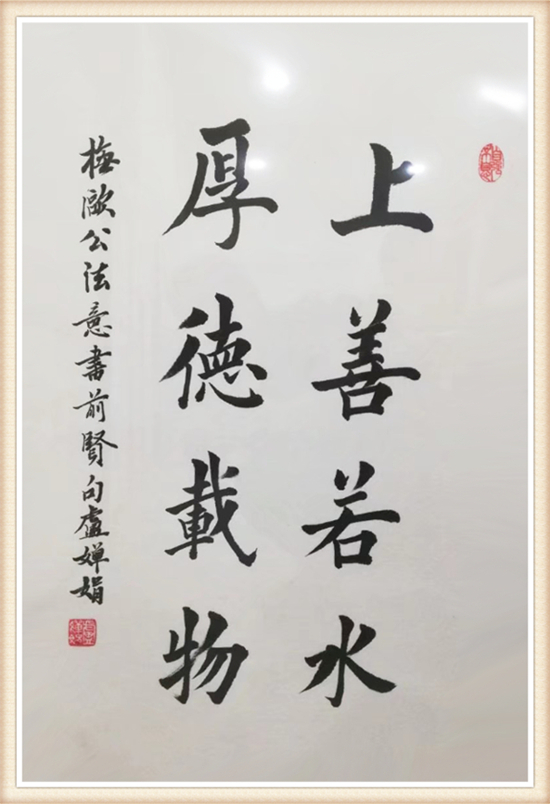 上善若水
厚德載物
歐公法意書前賢句盧嬋娟